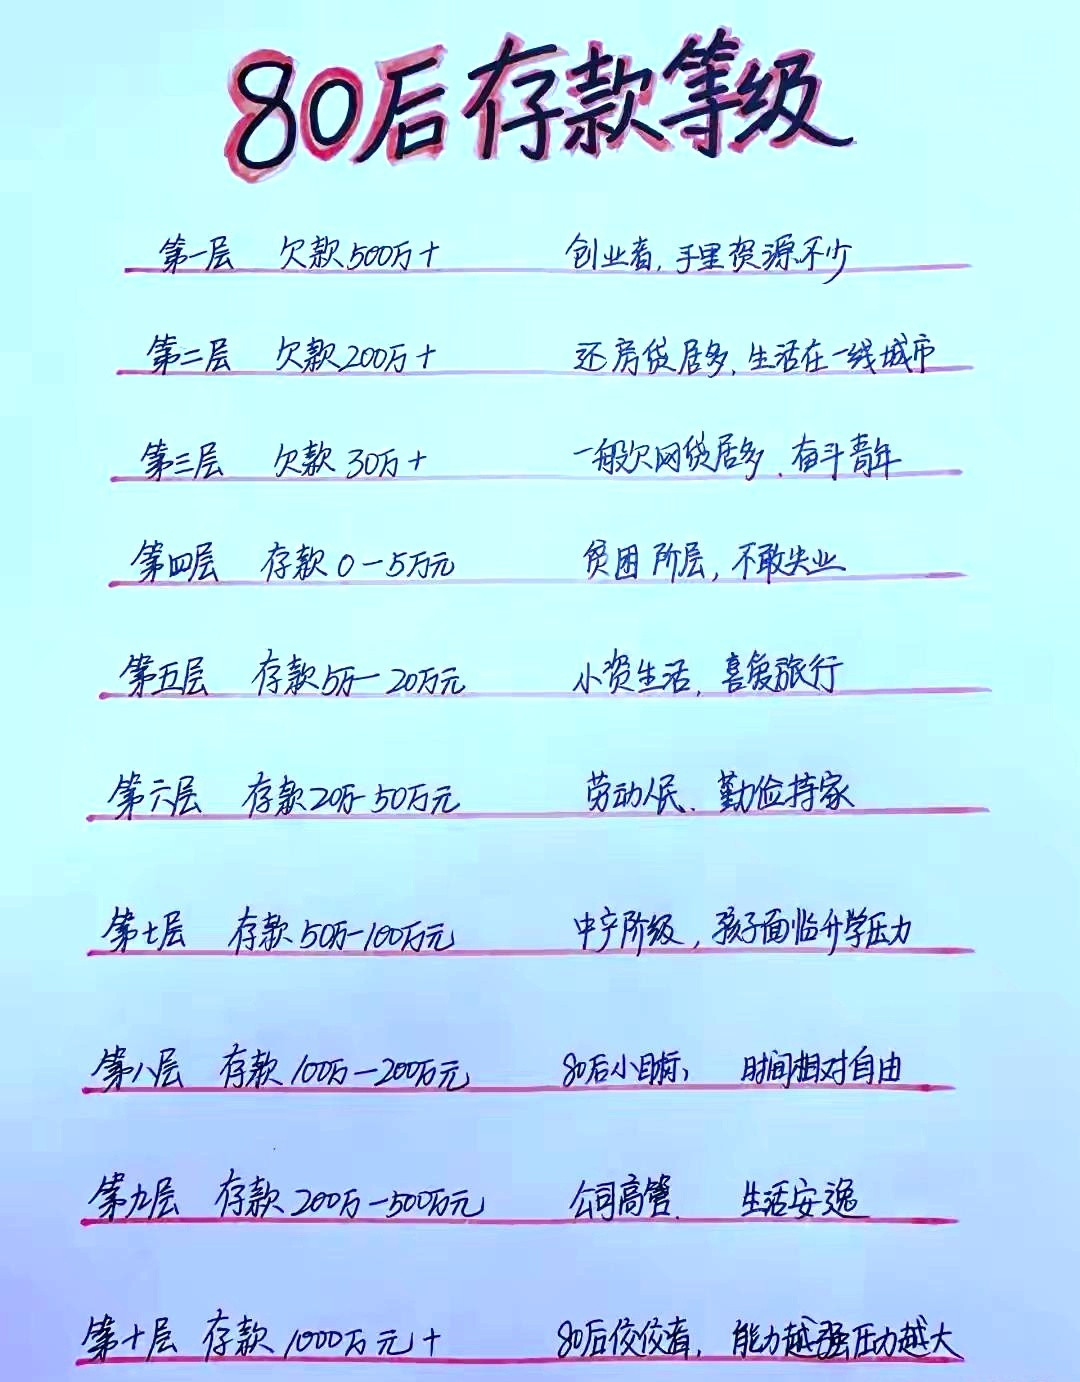 80后存款等级
第一层 欠款500万+ 创业者,手里资源不少
第二层 欠款200万+ 还房贷居多,生活在一线城市
第三层 欠款30万+ 一般欠网贷居多、奋斗青年
第四层 存款0-5万元 贫困阶层,不敢失业
第五层 存款5万-20万元 小资生活,喜爱旅行
第六层 存款20万-50万元 劳动人民、勤俭持家
第七层 存款50万-100万元 中产阶级,孩子面临升学压力
第八层 存款100万-200万元 80后小目标, 时间相对自由
第九层 存款200万-500万元 公司高管、 生活安逸
第十层 存款1000万元+ 80后佼佼者,能力越强压力越大